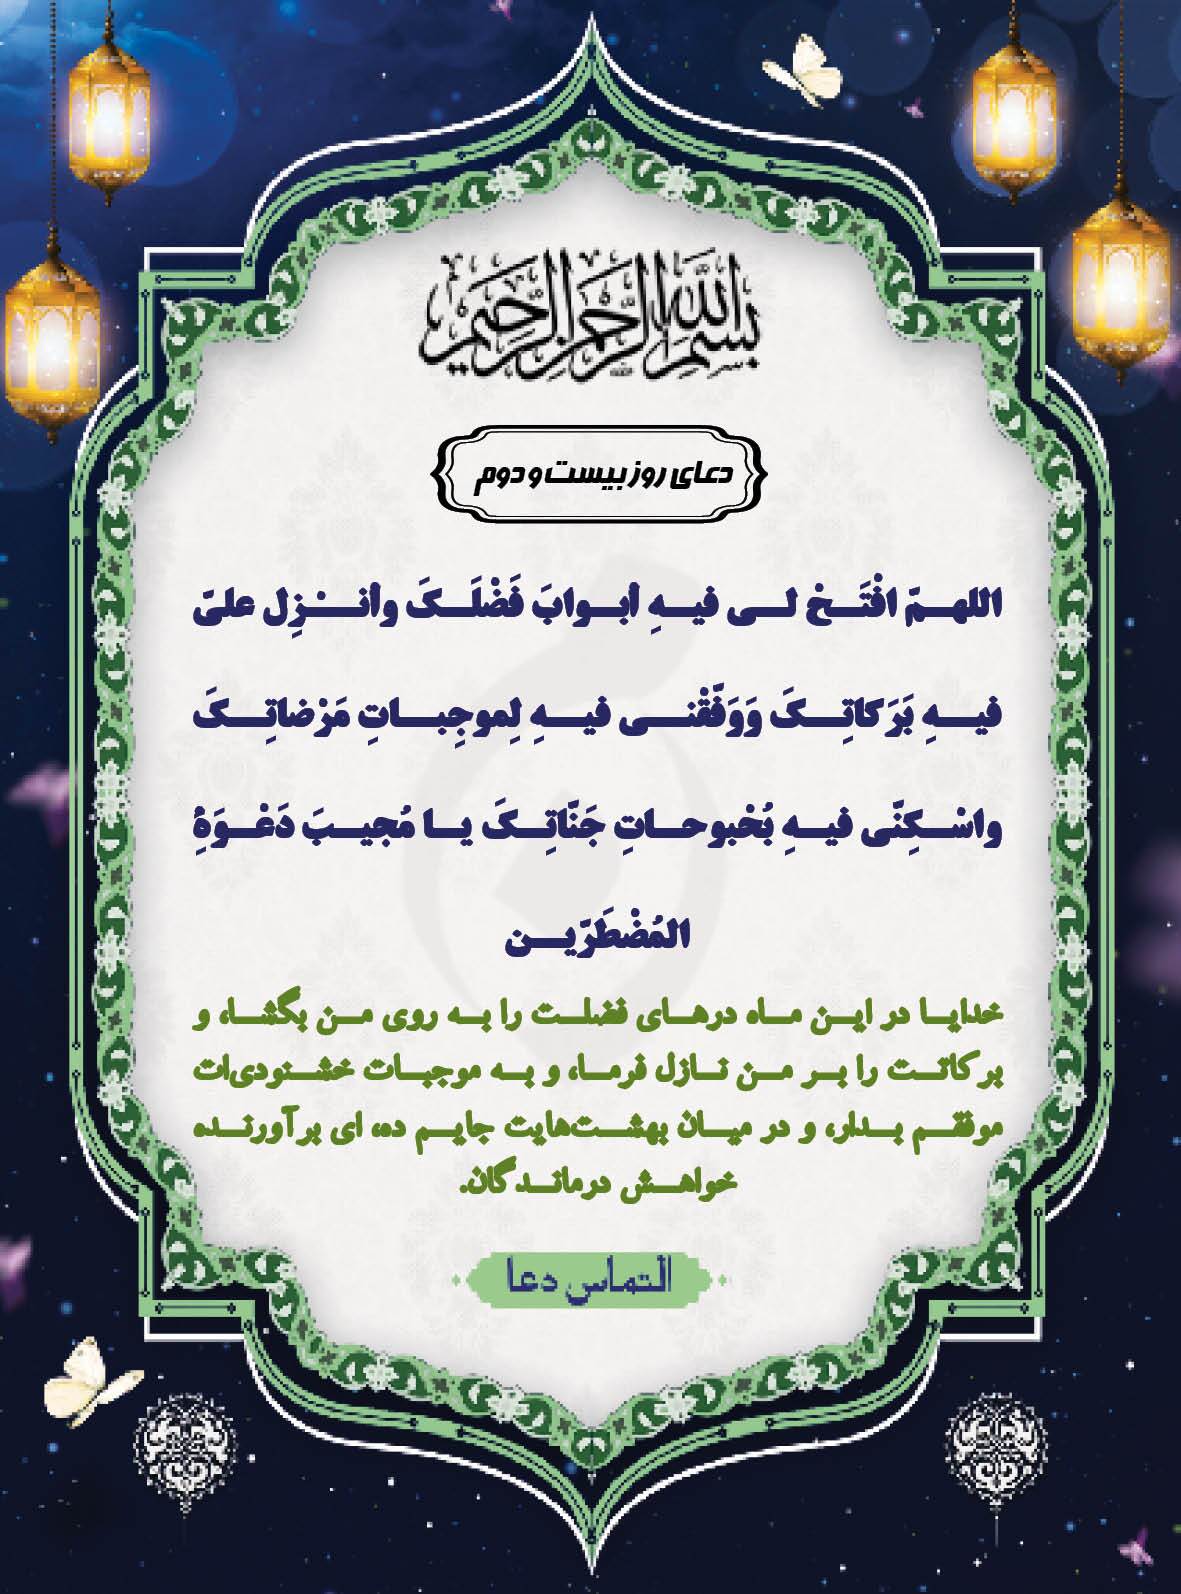 بسم الله الرحمن الرحیم
دعای روز بیست و دوم
اللهمّ افْتَحْ لی فیهِ أبوابَ فَضْلَکَ وأنْزِل علیّ
فیهِ بَرَکاتِکَ وَوَفّقْنی فیهِ لِموجِباتِ مَرْضاتِکَ
واسْکِنّی فیهِ بُحْبوحاتِ جَنّاتِکَ یا مُجیبَ دَعْوَةِ
المُضْطَرّین
خدایا در این ماه درهای فضلت را به روی من بگشا، و
برکاتت را بر من نازل فرما، و به موجبات خشنودی‌ات
موفقم بدار، و در میان بهشت‌هایت جایم ده، ای برآورنده
خواهش درماندگان.
التماس دعا